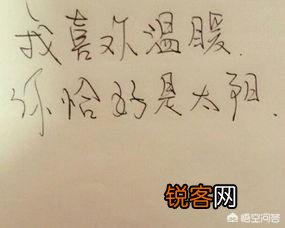 我喜欢温暖.
你恰好是太阳.
锐客网
悟空问答